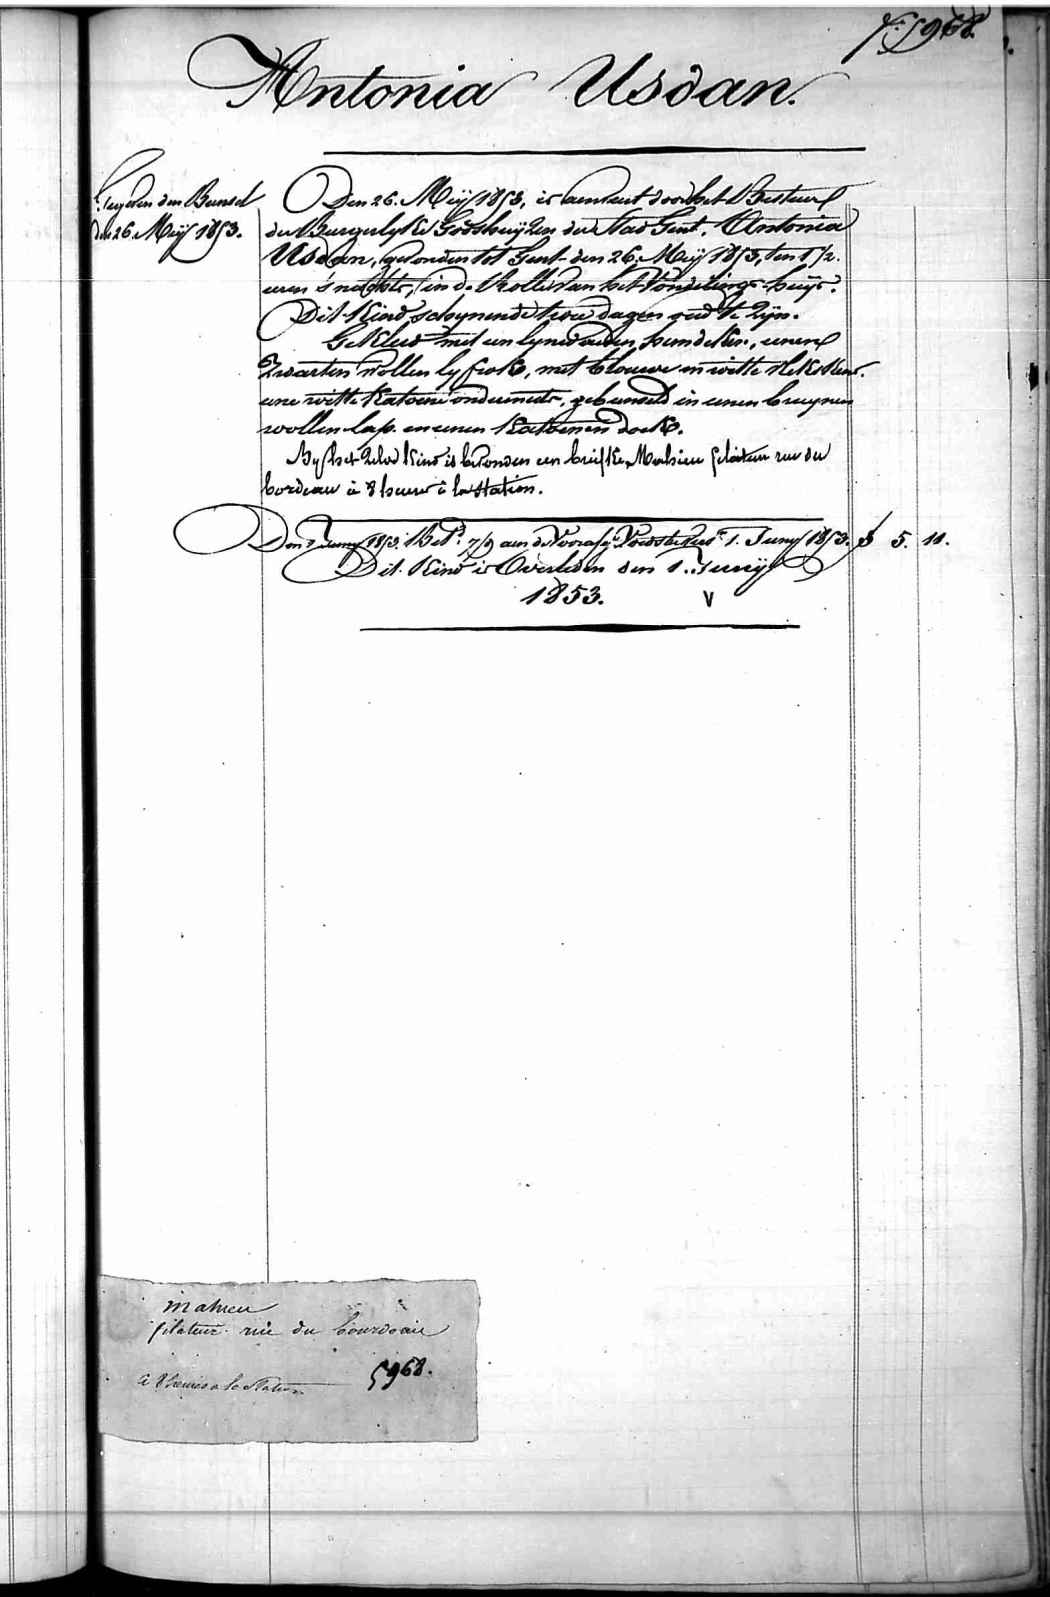 5968.
Antonia Usdan.
den Bussel
den 26. Meÿ 1853.
Den 26. Meÿ 1853, is aenveert door het Bestuer
der Burgerlyke Godshuÿzen der Stad Gent, Antonia
Usdan, gevonden tot Gent den 26. Meÿ 1853, ten 1 1/2.
uren s'nachts, in de Rolle van het Vondelings-huÿs.
Dit Kind schynende twee dagen oud te zÿn.
Gekleed met een lynwaeden hemdeken, eenen
Zwarten wollen lyfrok, met blauwe en witte
eene witte katoene ondermuts, gebusseld in eenen bruynen
wollen lap en eenen katoenen doek.
By het zelve kind is bevonden een briefke, Mahieu filateur rue du
bordeau à 8 heure à la station.
Den Juny 1853. 7/9 aen de 1. Juny 1853. 5. 11.
Dit Kind is Overleden den 1. Junÿ
1853.
Mahieu
filateur rue du bourdeau
a 8 heures a la station
5968.